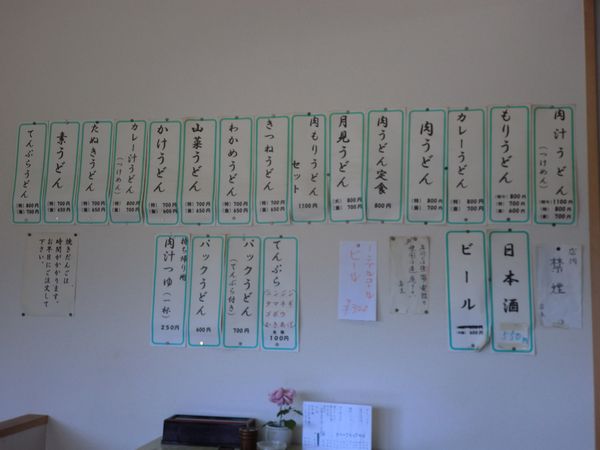 肉汁うどん
(つけめん)
1100円
800円
700円
もりうどん
800円
700円
600円
カレーうどん
800円
700円
肉うどん
800円
700円
肉うどん定食
800円
月見うどん
800円
700円
肉もりうどん
セット
1100円
きつねうどん
700円
650円
わかめうどん
700円
650円
山菜うどん
700円
650円
かけうどん
700円
600円
カレー汁うどん
(つけめん)
800円
700円
たぬきうどん
700円
650円
素うどん
700円
650円
てんぷらうどん
800円
700円
店内
禁煙
店主
日本酒
550円
ビール
600円
ノンアルコール
ビール
店主
てんぷら
100円
パックうどん
(てんぷら付き)
700円
パックうどん
600円
持ち帰り用
肉汁つゆ(一杯)
250円
焼きだんごは、
時間がかかります。
お早目にご注文して
下さい。